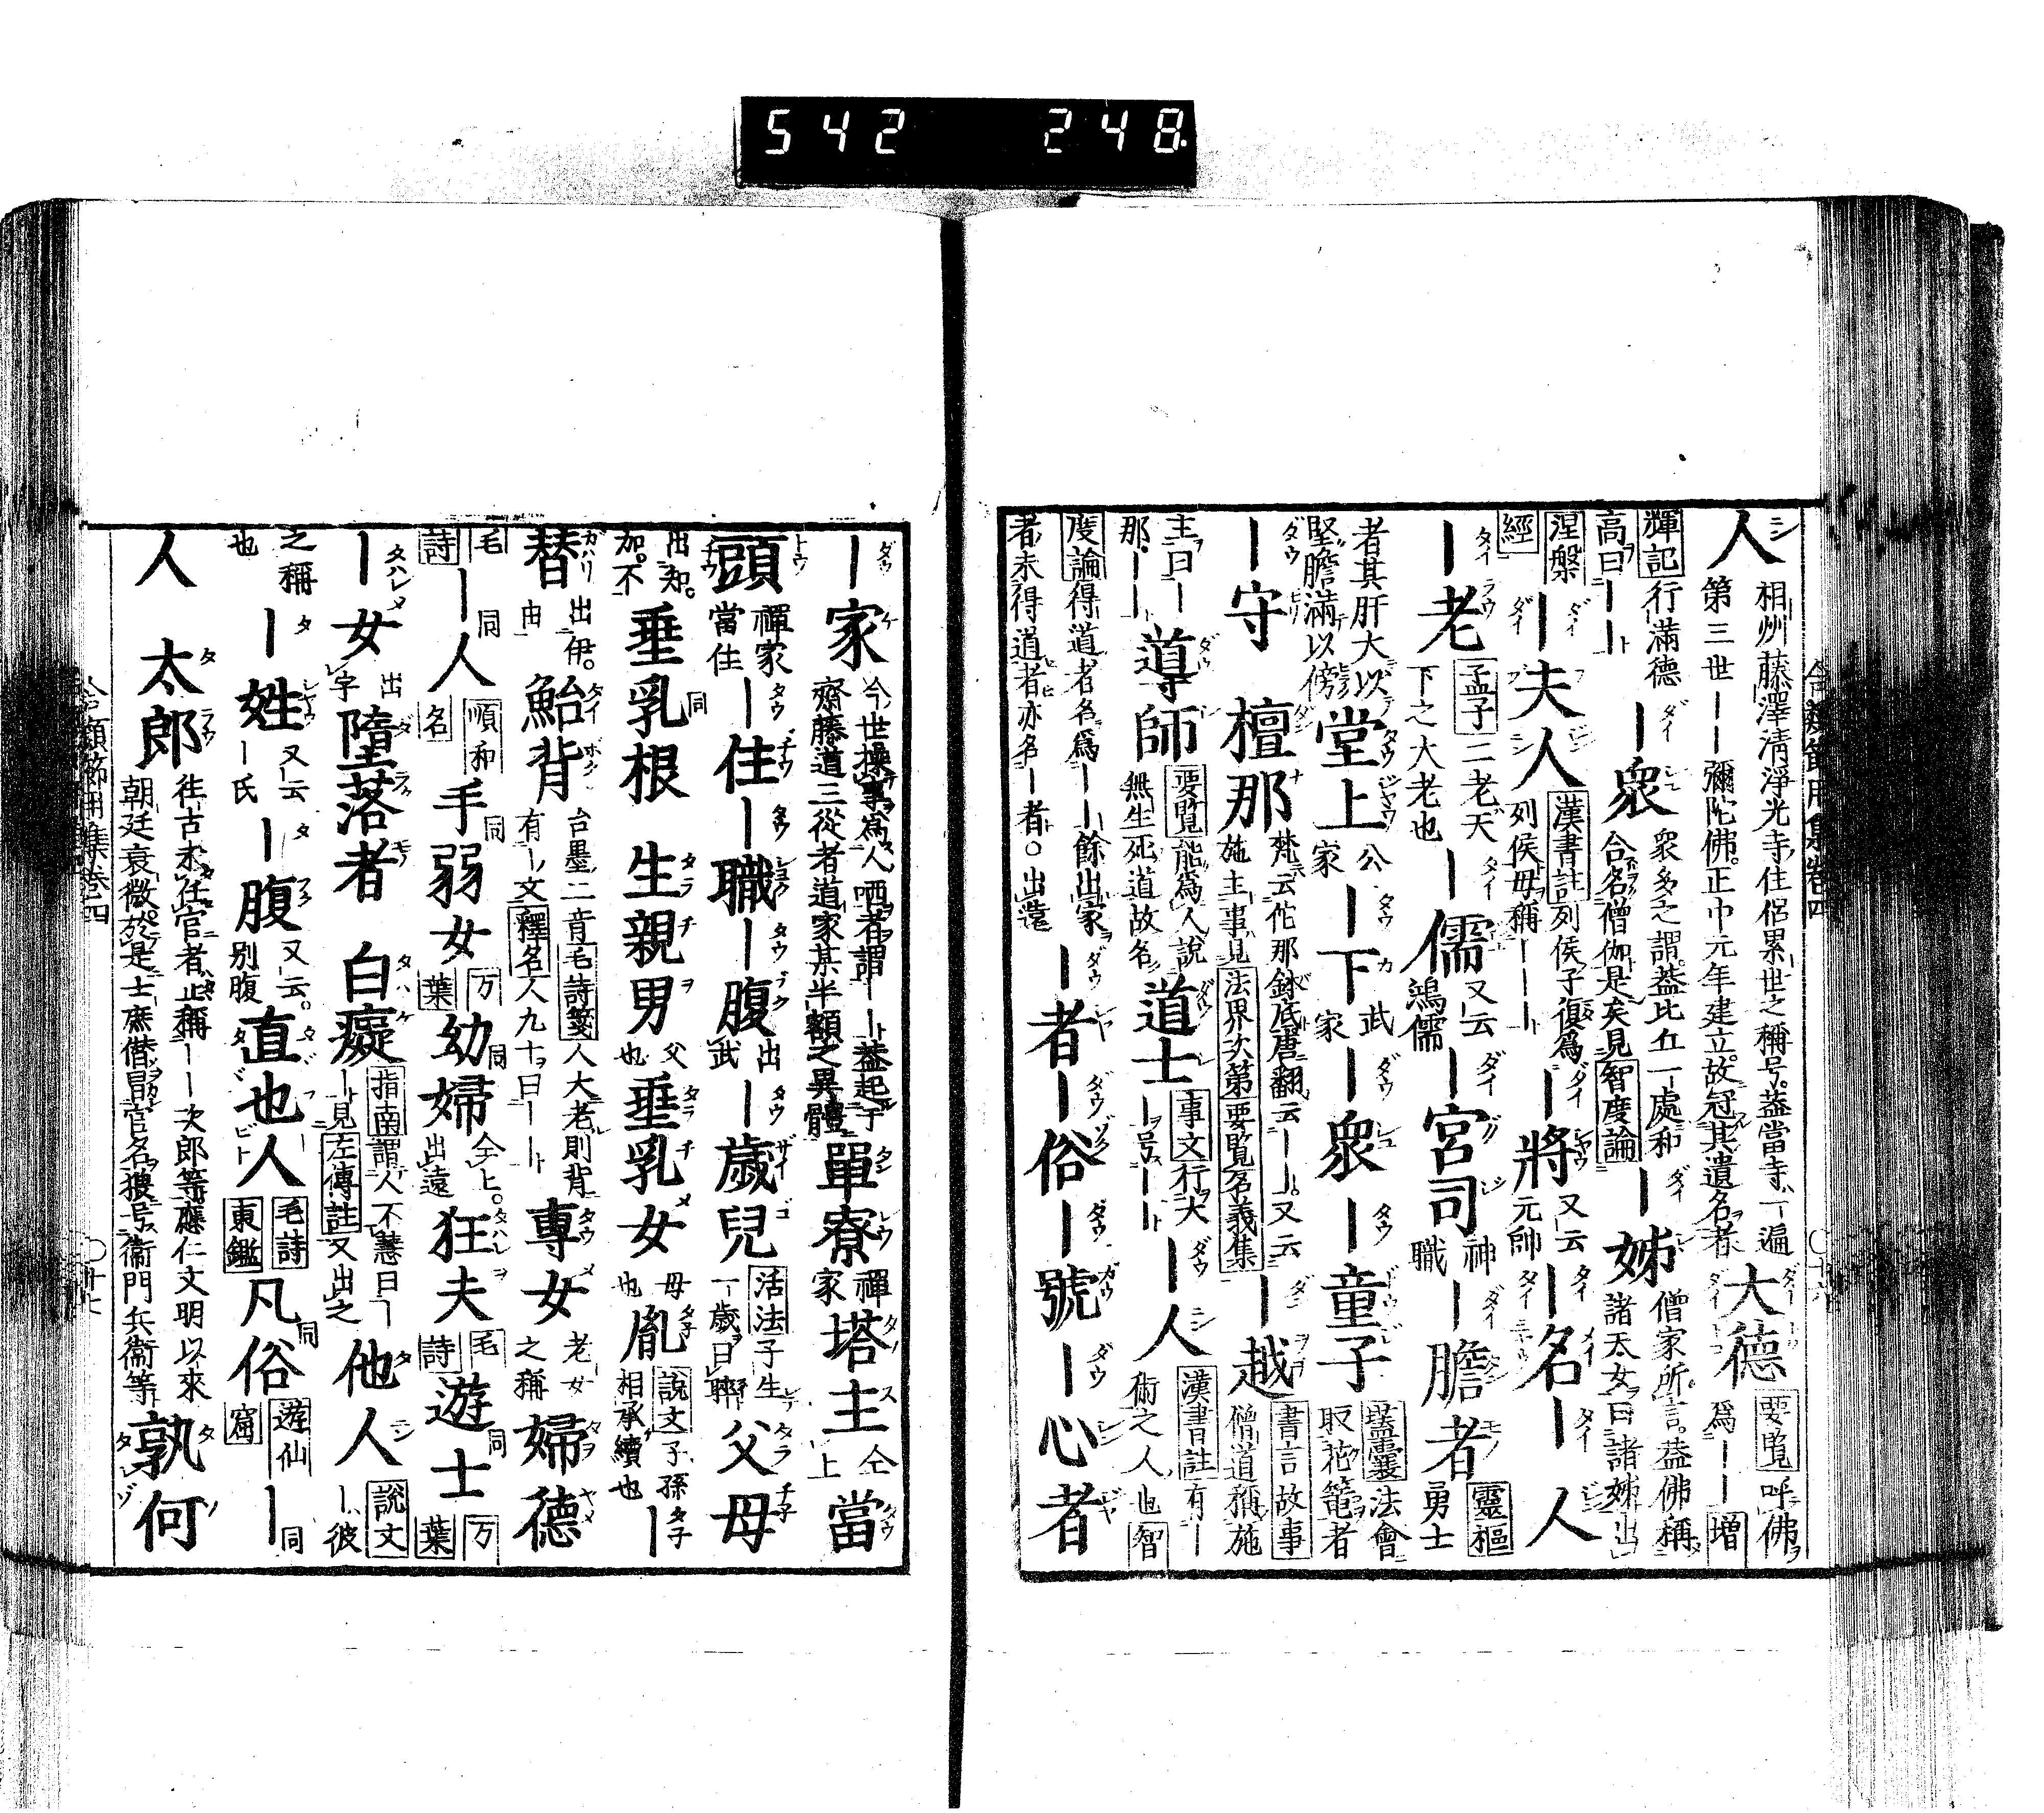 542 248
合類節用集卷四 〇十六
人 相州藤澤清淨光寺住侶累世之稱号。蓋當寺一遍
第三世ーー彌陀佛。正中元年建立。故冠其遺名者
大德 要覧 呼佛爲ーー 増
輝記 行滿德高曰ーー
ー衆 衆多之謂。蓋比丘一處和合名僧伽是矣見 智度論
ー姊 僧家所言。蓋佛稱諸太女曰諸姊出 涅槃經
ー夫人 漢書註 列侯子復爲列侯母稱ーーー
ー將 又云元帥
ー名
ー人
ー老 孟子 二老天下之大老也
ー儒 又云鴻儒
ー宮司 神職
ー膽者 靈樞 勇士者其肝大以堅膽滿以傍
堂上 公家
ー下 武家
ー衆
ー童子 蓋囊 法會取花篭者
ー守
檀那 梵云佗那鉢底唐翻云ーー。又云施主事見 法界次第 要覧 名義集
ー越 書言故事 僧道稱施主曰ー那ーー
導師 要覧 能爲人説無生死道故名
道士 事文 行大ー号ーー
ー人 漢書註 有ー術之人也 智度論 得道者名爲ーー餘出家者未得道者亦名ー者。出遠
ー者
ー俗
ー號
ー心者
ー家 今世操事爲人哂者謂ー蓋起于齋藤道三從者道家某半額之異體
單寮 禪家
塔主 仝上
當頭 禪家當住
ー住
ー職
ー腹 出武
ー歳兒 活法 子生一歳曰聹
父母 出知。加。不
垂乳根 同
生親男 父也
垂乳女 母也
胤 説文 子孫相承續也
ー替 出伊。由
鮐背 台墨二音 毛詩箋 人大老則背有ー文 釋名 人九十曰ーー
專女 老女之稱
婦德 毛詩
ー人 同 順和名
手弱女 同 万葉
幼婦 同 仝上。出遠
狂夫 毛詩
遊士 同 万葉
ー女 出字
墮落者
白癡 指南 謂人不慧曰ーー見 左傳註 又出之
他人 説文 ー彼之稱也
ー姓 又云ー氏
ー腹 又云。別腹
直也人 毛詩 東鑑
凡俗 同 遊仙窟
ー人 同
太郎 往古未任官者止稱ーー次郎等應仁文明以來
朝廷衰微於是士庶僭冒官名猥号衞門兵衞等
孰何
合類節用集卷四 〇十七